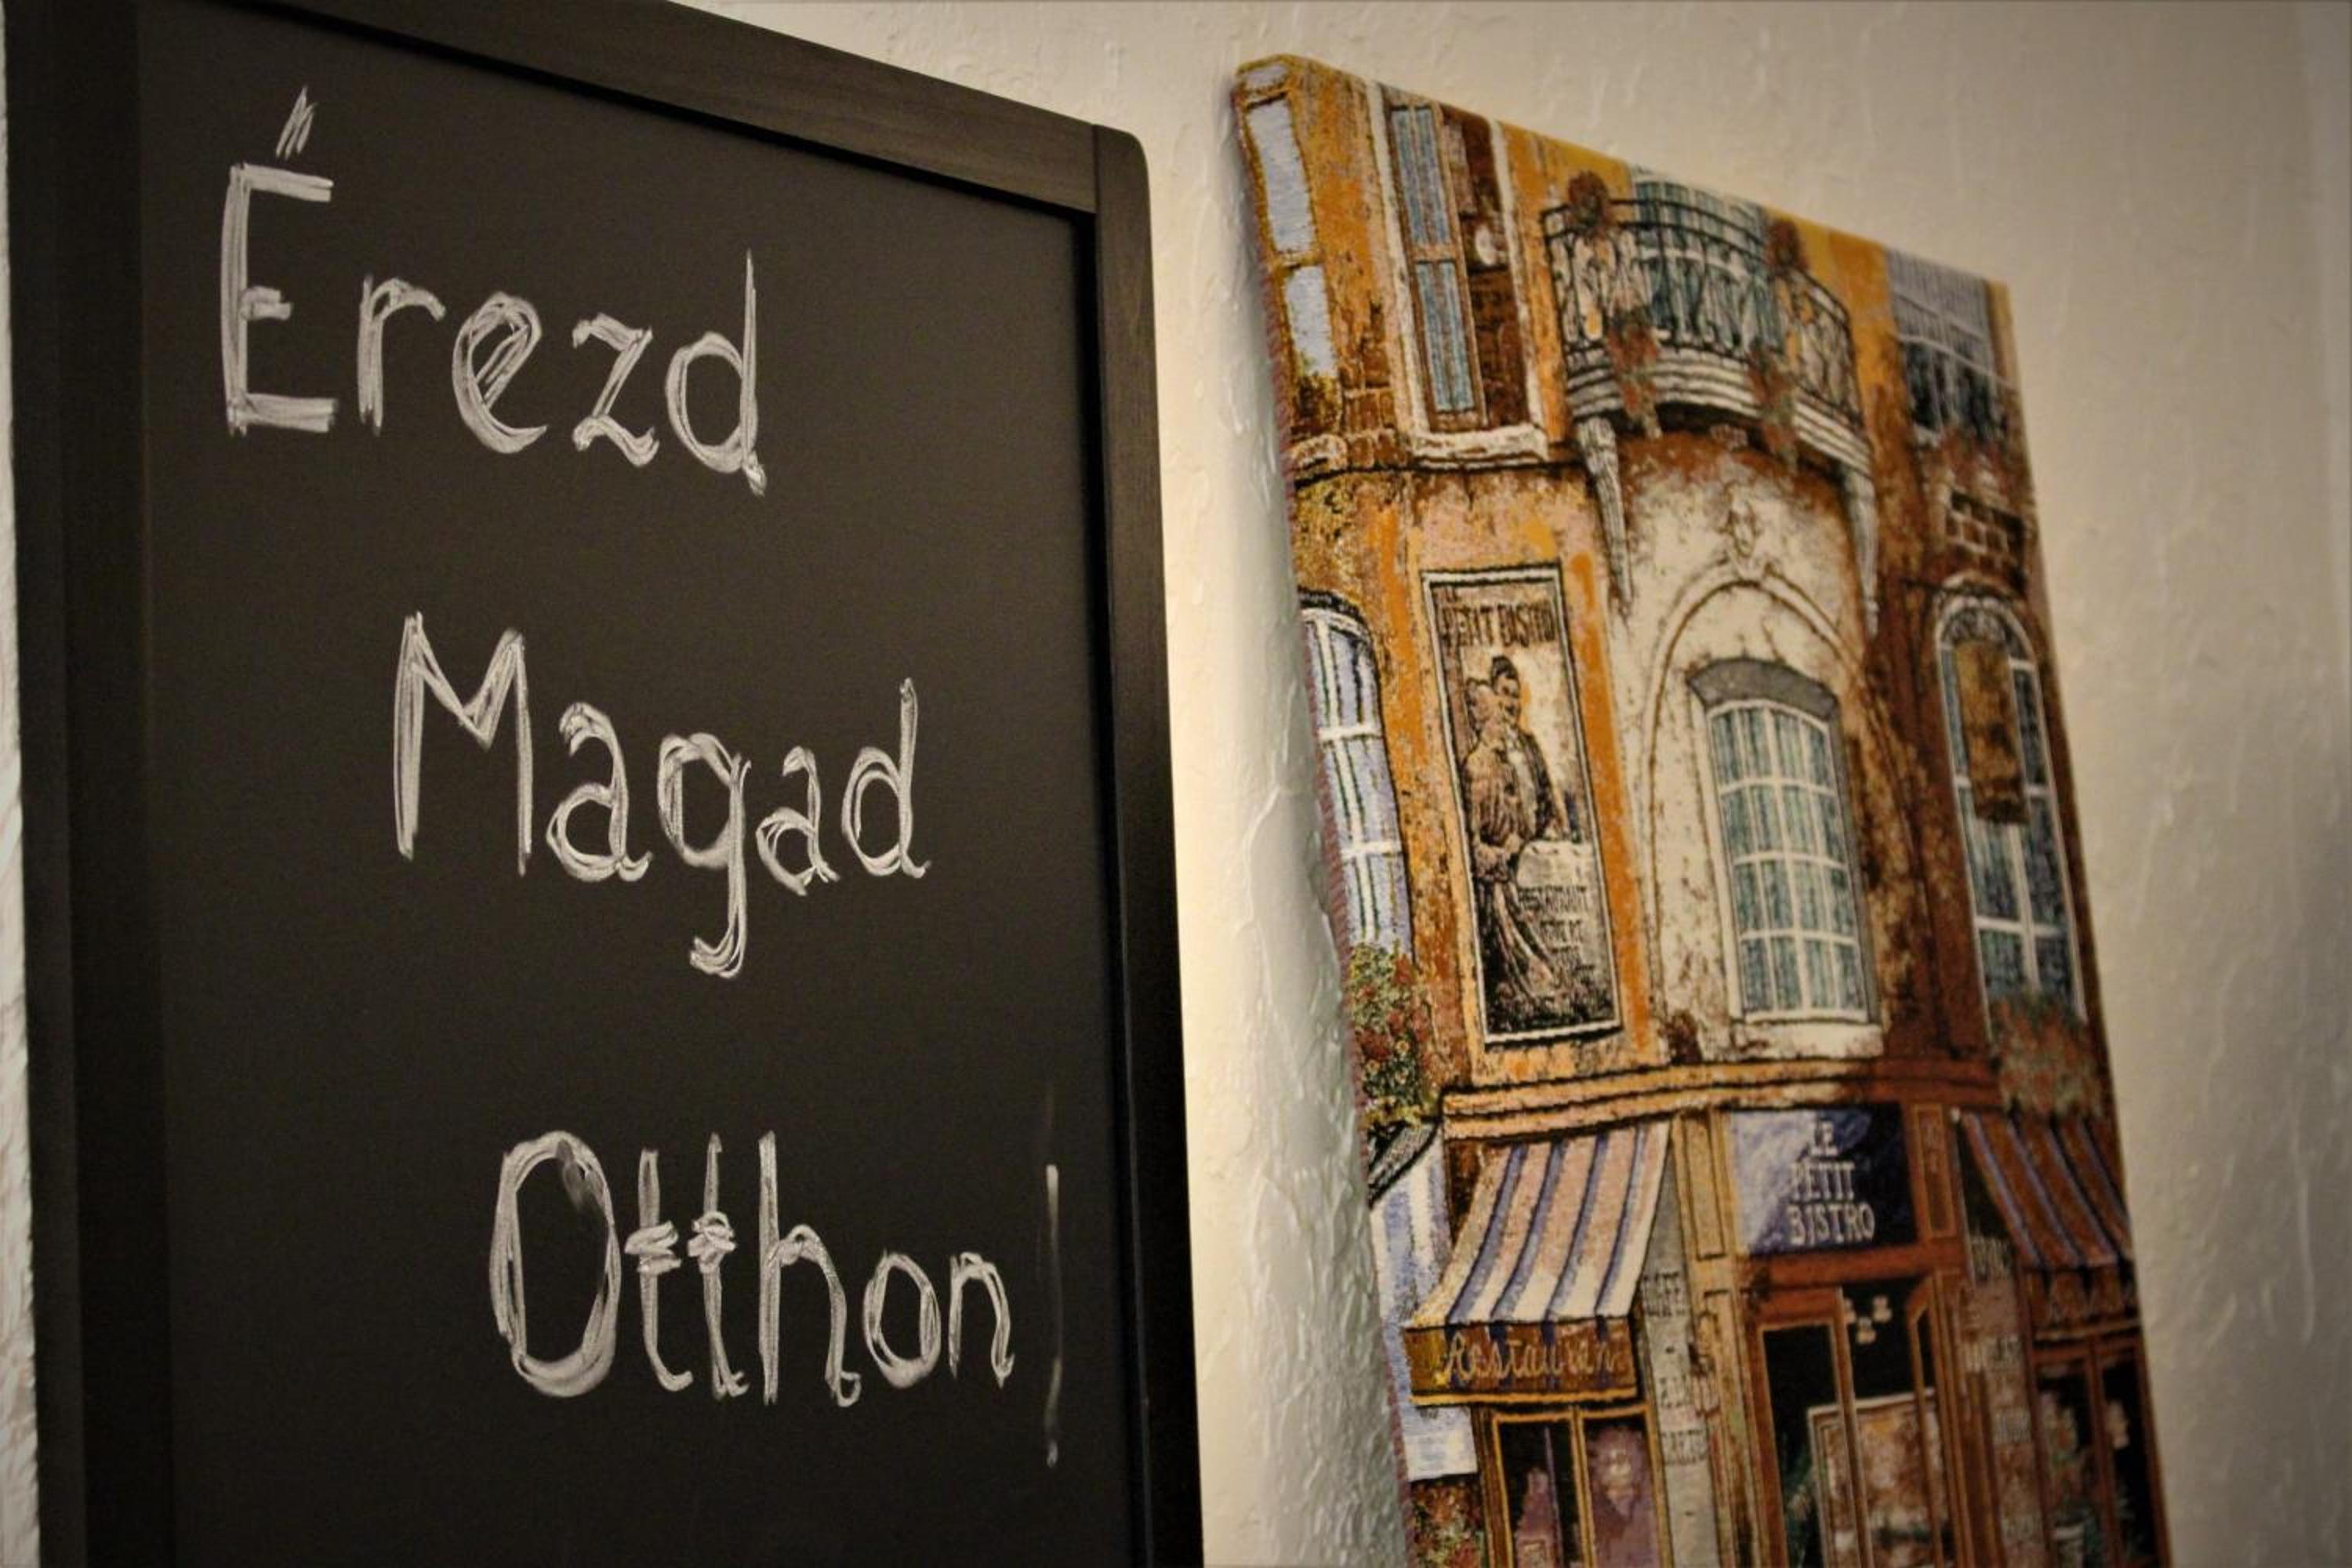 Érezd
Magad
Otthon!
PETIT BISTRO
RESTAURANT
LE
PETIT
BISTRO
CAFE
Restaurant